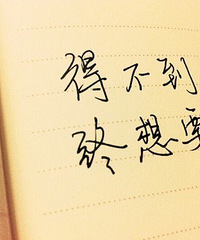 得不到
终想要